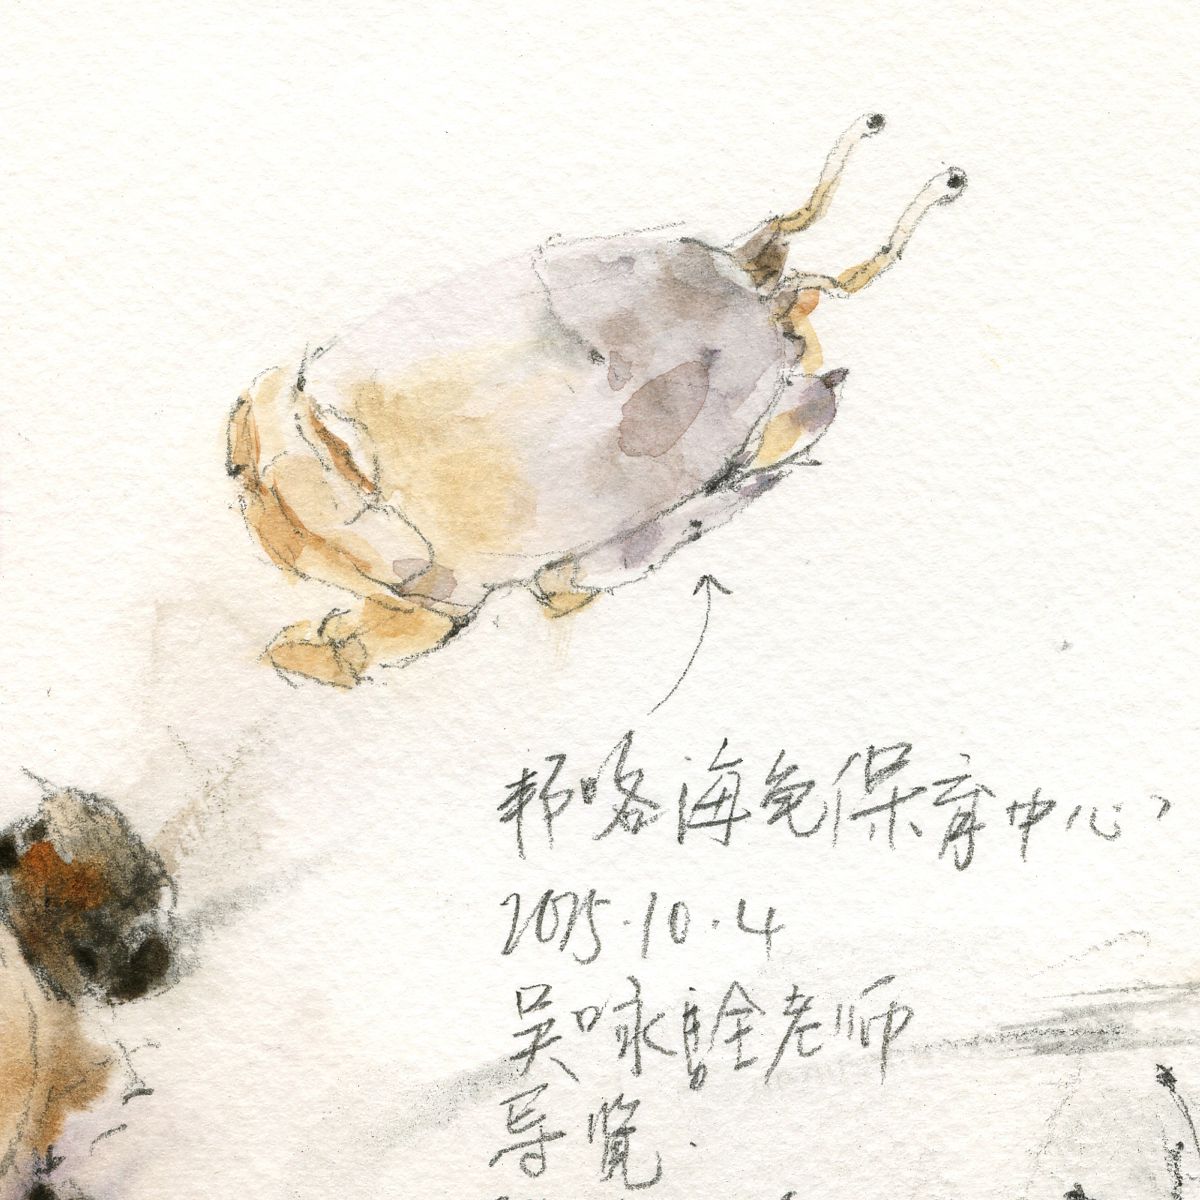 邦咯海龟保育中心,
2025.10.4
吴咏 老师
导览.